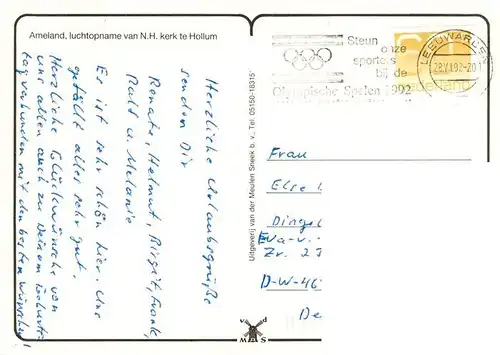 Ameland, luchtopname van N.H. kerk te Hollum
Herzliche Urlaubsgrüße
senden Dir
Renate, Helmut, Birgit, Frank,
Ralf u. Melanie
Es ist sehr schön hier. Uns
gefällt alles sehr gut.
Herzliche Glückwünsche von
uns allen auch zu Deinem Geburts-
tag verbunden mit den besten Wünschen!
Uitgeverij van der Meulen Sneek b.v., Tel. 05150-18315
v d
M S
Steun
onze
sporters
bij de
Olympische Spelen 1992
LEEUWARDEN
nederland
Frau
Else
Eva-v.
Zr. 2
D-W-46